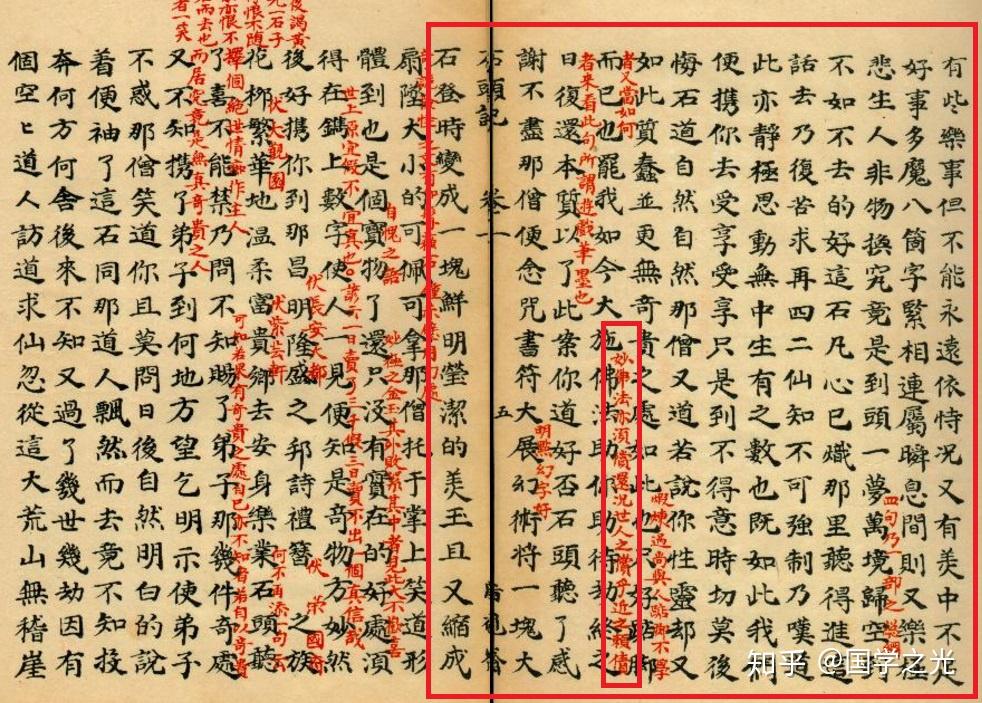 有些樂事但不能永遠依恃況又有美中不足
好事多魔八箇字緊相連屬瞬息間則又樂極
悲生人非物換究竟是到頭一夢萬境歸空
四句乃一部之總綱
不如不去的好這石凡心已熾那里聽得進這
話去乃復苦求再四二仙知不可強制乃嘆道
此亦靜極思動無中生有之數也既如此我們
便携你去受享受享只是到不得意時切莫後
悔石道自然自然那僧又道若說你性靈却又
如此質蠢並更無奇貴之處如此也只好踮脚
煅煉過尚與人踮脚不學
者又當如何
而已也罷我如今大施佛法助你助待劫終之
妙佛法亦須償還況世人之償乎近之賴債
者來看此句所謂遊戲筆墨也
日復還本質以了此案你道好否石頭聽了感
謝不盡那僧便念咒書符大展幻術將一塊大
明點幻字好
石頭記 卷一 五 脂硯齋
石登時變成一塊鮮明瑩潔的美玉且又縮成
扇墜大小的可佩可拿那僧托于掌上笑道形
體到也是個寶物了還只沒有實在的好處須
自愧之語
妙極之金玉其外敗絮其中者見此大不歡喜
得在鐫上數字使人一見便知是奇物方妙然
世上原宜假不宜真也。諺云一日賣了三千假三日賣不出一個真信哉
後好携你到那昌明隆盛之邦詩禮簪纓之族
伏長安大都
伏榮國府
花柳繁華地溫柔富貴鄉去安身樂業石頭聽
伏大觀園
伏紫芸軒
何不再添一句云
擇個絕世情痴作主人
了喜不能禁乃問不知賜了弟子那幾件奇處
可知若果有奇貴之處自己亦不知者若自以奇貴
而居究竟是無真奇貴之人
又不知携了弟子到何地方望乞明示使弟子
不惑那僧笑道你且莫問日後自然明白的說
着便袖了這石同那道人飄然而去竟不知投
奔何方何舍後來不知又過了幾世幾劫因有
個空〻道人訪道求仙忽從這大荒山無稽崖
知乎 @国学之光